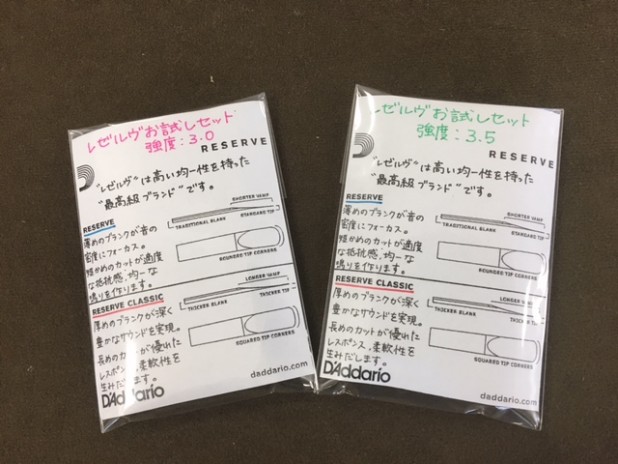 レゼルヴお試しセット
強度:3.0
RESERVE
"レゼルヴ"は高い均一性を持った
"最高級ブランド"です。
RESERVE
薄めのブランクが音の
密度にフォーカス。
短かめのカットが適度
な抵抗感、均一な
鳴りを作ります。
SHORTER VAMP
TRADITIONAL BLANK
STANDARD TIP
ROUNDED TIP CORNERS
RESERVE CLASSIC
厚めのブランクが深く
豊かなサウンドを実現。
長めのカットが優れた
レスポンス、柔軟性を
生みだします。
LONGER VAMP
THICKER BLANK
THICKER TIP
SQUARED TIP CORNERS
D'Addario
daddario.com
レゼルヴお試しセット
強度:3.5
RESERVE
"レゼルヴ"は高い均一性を持った
"最高級ブランド"です。
RESERVE
薄めのブランクが音の
密度にフォーカス。
短かめのカットが適度
な抵抗感、均一な
鳴りを作ります。
SHORTER VAMP
TRADITIONAL BLANK
STANDARD TIP
ROUNDED TIP CORNERS
RESERVE CLASSIC
厚めのブランクが深く
豊かなサウンドを実現。
長めのカットが優れた
レスポンス、柔軟性を
生みだします。
LONGER VAMP
THICKER BLANK
THICKER TIP
SQUARED TIP CORNERS
D'Addario
daddario.com